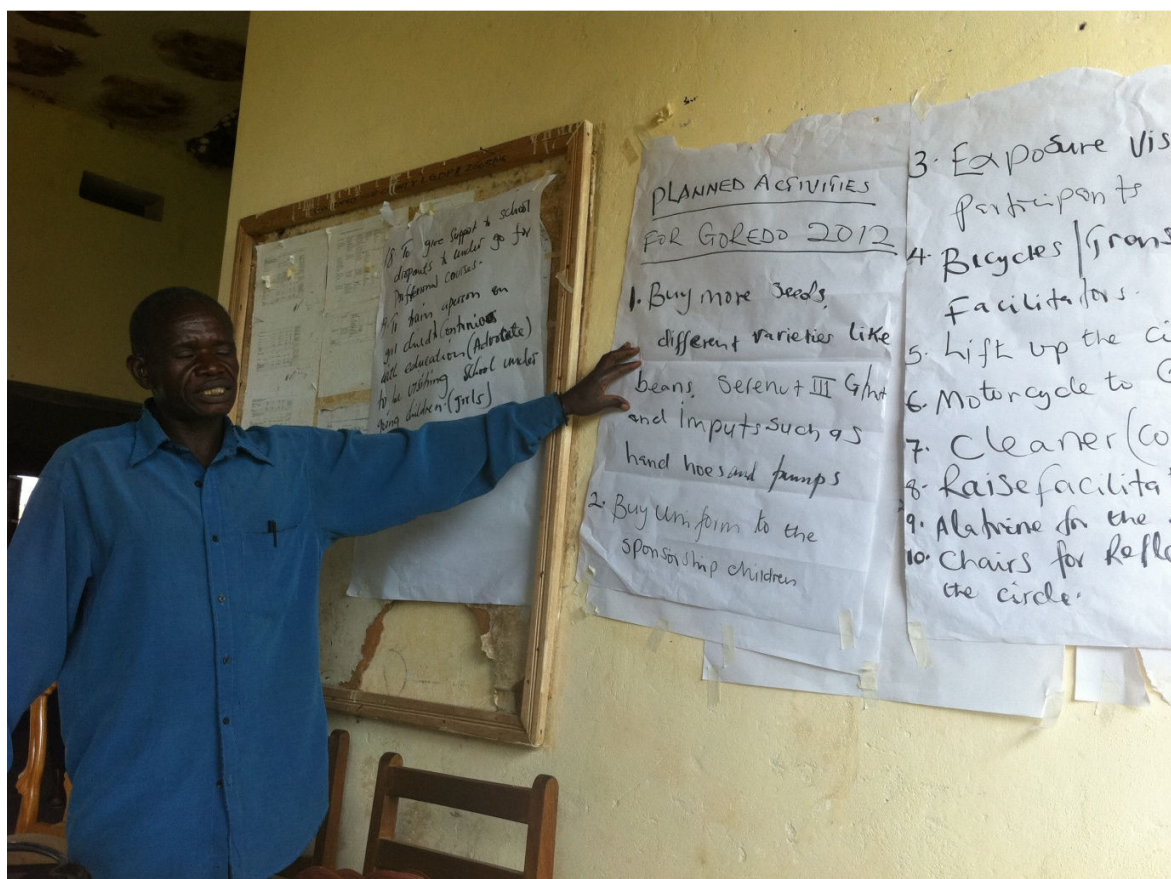 18 To give support to school
dropouts to under go for
proffesional courses.
To train aperson on
girl child continue
with education (Advocate)
to be visiting school under
young children (girls)
PLANNED ACTIVITIES
FOR GOREDO 2012
1. Buy more seeds,
different varieties like
beans, Serenut III G/nut
and Imputs such as
hand hoes and pumps
2. Buy uniform to the
sponsorship children
3. Exposure Vis
participants
4. Bicycles/Trans
Facilitators.
5. Lift up the
6. Motorcycle to
7. Cleaner (Co
8. Raise facilita
9. Alatrine for the
10. Chairs for Refle
the circle.